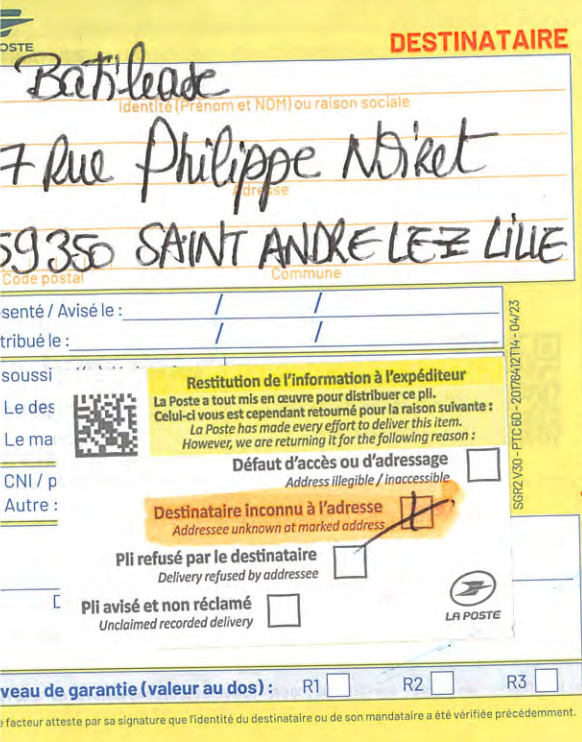 OSTE
DESTINATAIRE
Batilease
Identité (Prénom et NOM) ou raison sociale
7 Rue Philippe Noiret
Adresse
59350 SAINT ANDRE LEZ LILLE
Code postal Commune
senté / Avisé le : / /
tribué le : / /
soussi
Le des
Le ma
CNI / p
Autre :
Restitution de l'information à l'expéditeur
La Poste a tout mis en œuvre pour distribuer ce pli.
Celui-ci vous est cependant retourné pour la raison suivante :
La Poste has made every effort to deliver this item.
However, we are returning it for the following reason :
Défaut d'accès ou d'adressage
Address illegible / inaccessible
Destinataire inconnu à l'adresse
Addressee unknown at marked address
Pli refusé par le destinataire
Delivery refused by addressee
Pli avisé et non réclamé
Unclaimed recorded delivery
LA POSTE
SGR2 V30 - PTC 6D - 20176412T14 - 04/23
veau de garantie (valeur au dos) : R1 R2 R3
e facteur atteste par sa signature que l'identité du destinataire ou de son mandataire a été vérifiée précédemment.